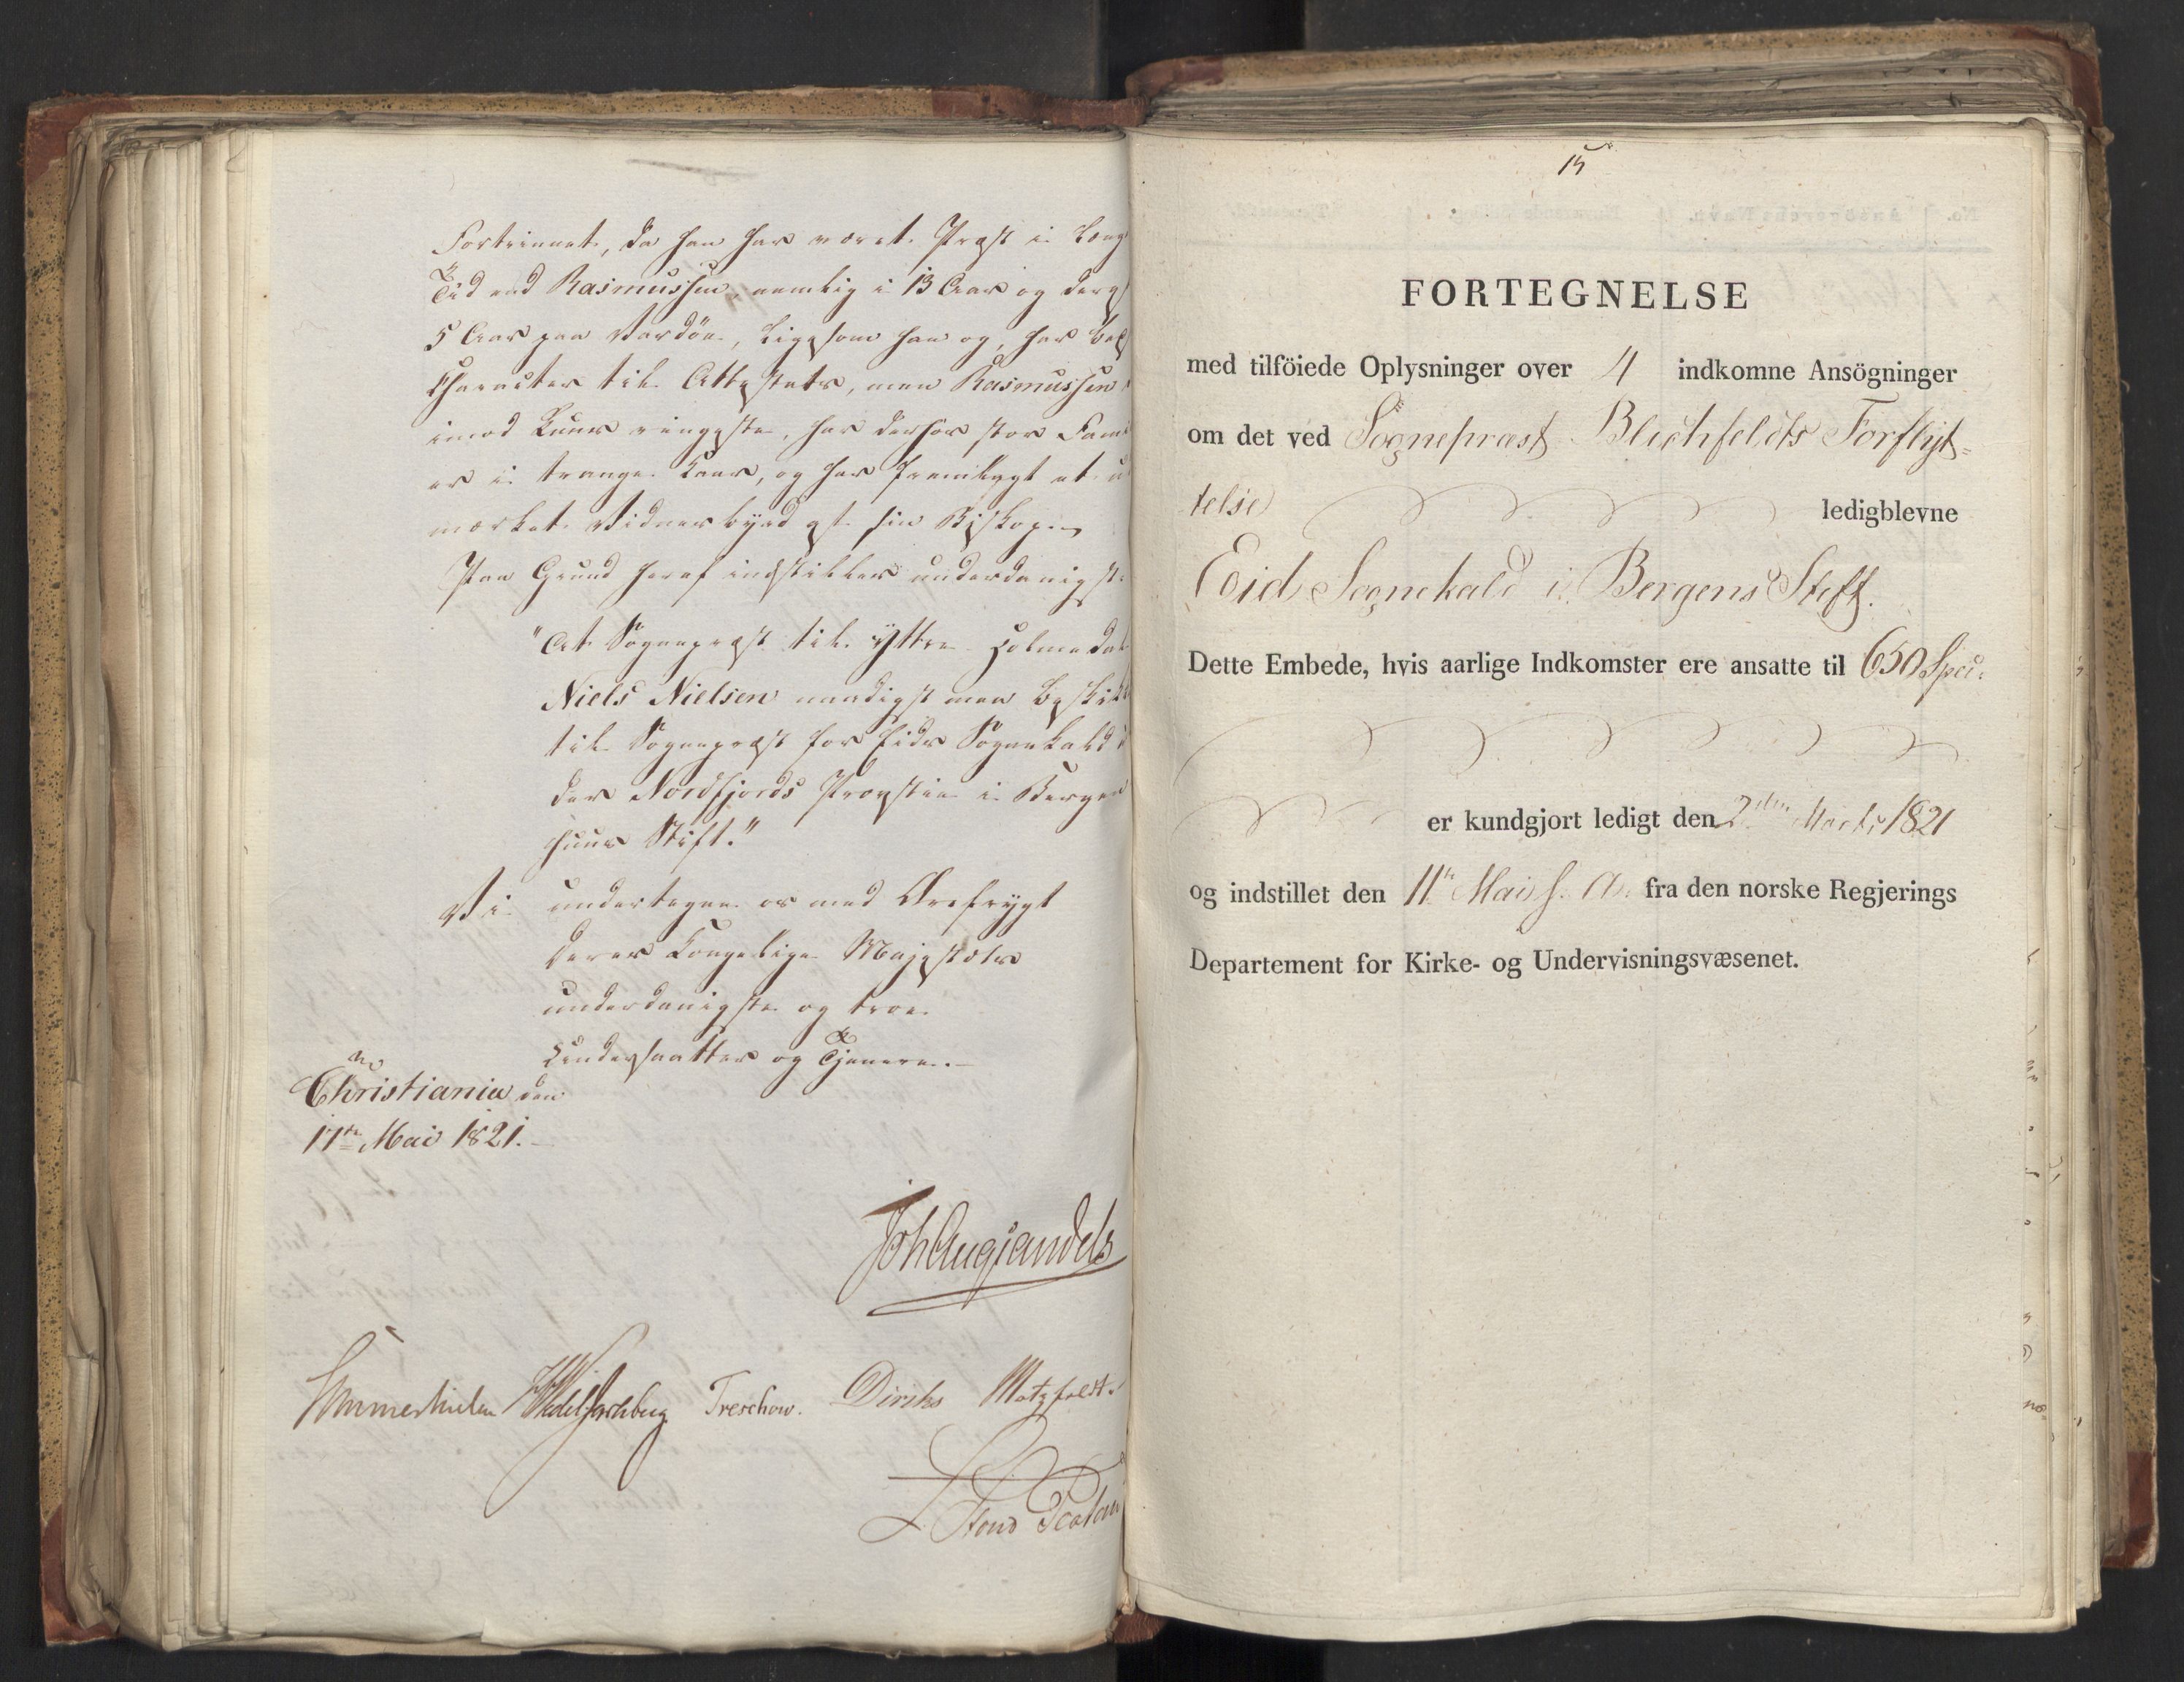 Fortrinnet, da han har været Præst i læng
Tid end Rasmussen, nemlig i 13 Aar og deraf
5 Aar paa Vardöe, ligesom han og har
Character til Attestats, men Rasmussen
imod kuns ringeste, har derhos stor Fami
er i trange Kaar, og har fremlagt et u
mærket Vidnesbyrd af sin Biskop.
Paa Grund heraf indstilles underdanigst:
"At Sognepræst til Yttre Holmedal
Niels Nielsen naadigst maa beskik
til Sognepræst for Eids Sognekald
der Nordfjords Provstie i Bergen
huus Stift."
Vi undertegne os med Ærefrygt
Deres Kongelige Majestæts
underdanigste og troe
Undersaatter og Tjenere.
Christiania den
11te Mai 1821.
Joh Aug Sandels
Sommerhielm Wedel Jarlsberg Treschow. Diriks Motzfeldt.
15
FORTEGNELSE
med tilföiede Oplysninger over 4 indkomne Ansögninger
om det ved Sognepræst Blichfeldts Forflyt-
telse ledigblevne
Eid Sognekald i Bergens Stift.
Dette Embede, hvis aarlige Indkomster ere ansatte til 650 Spec.
er kundgjort ledigt den 2den Marts 1821
og indstillet den 11te Mai s. A. fra den norske Regjerings
Departement for Kirke- og Undervisningsvæsenet.